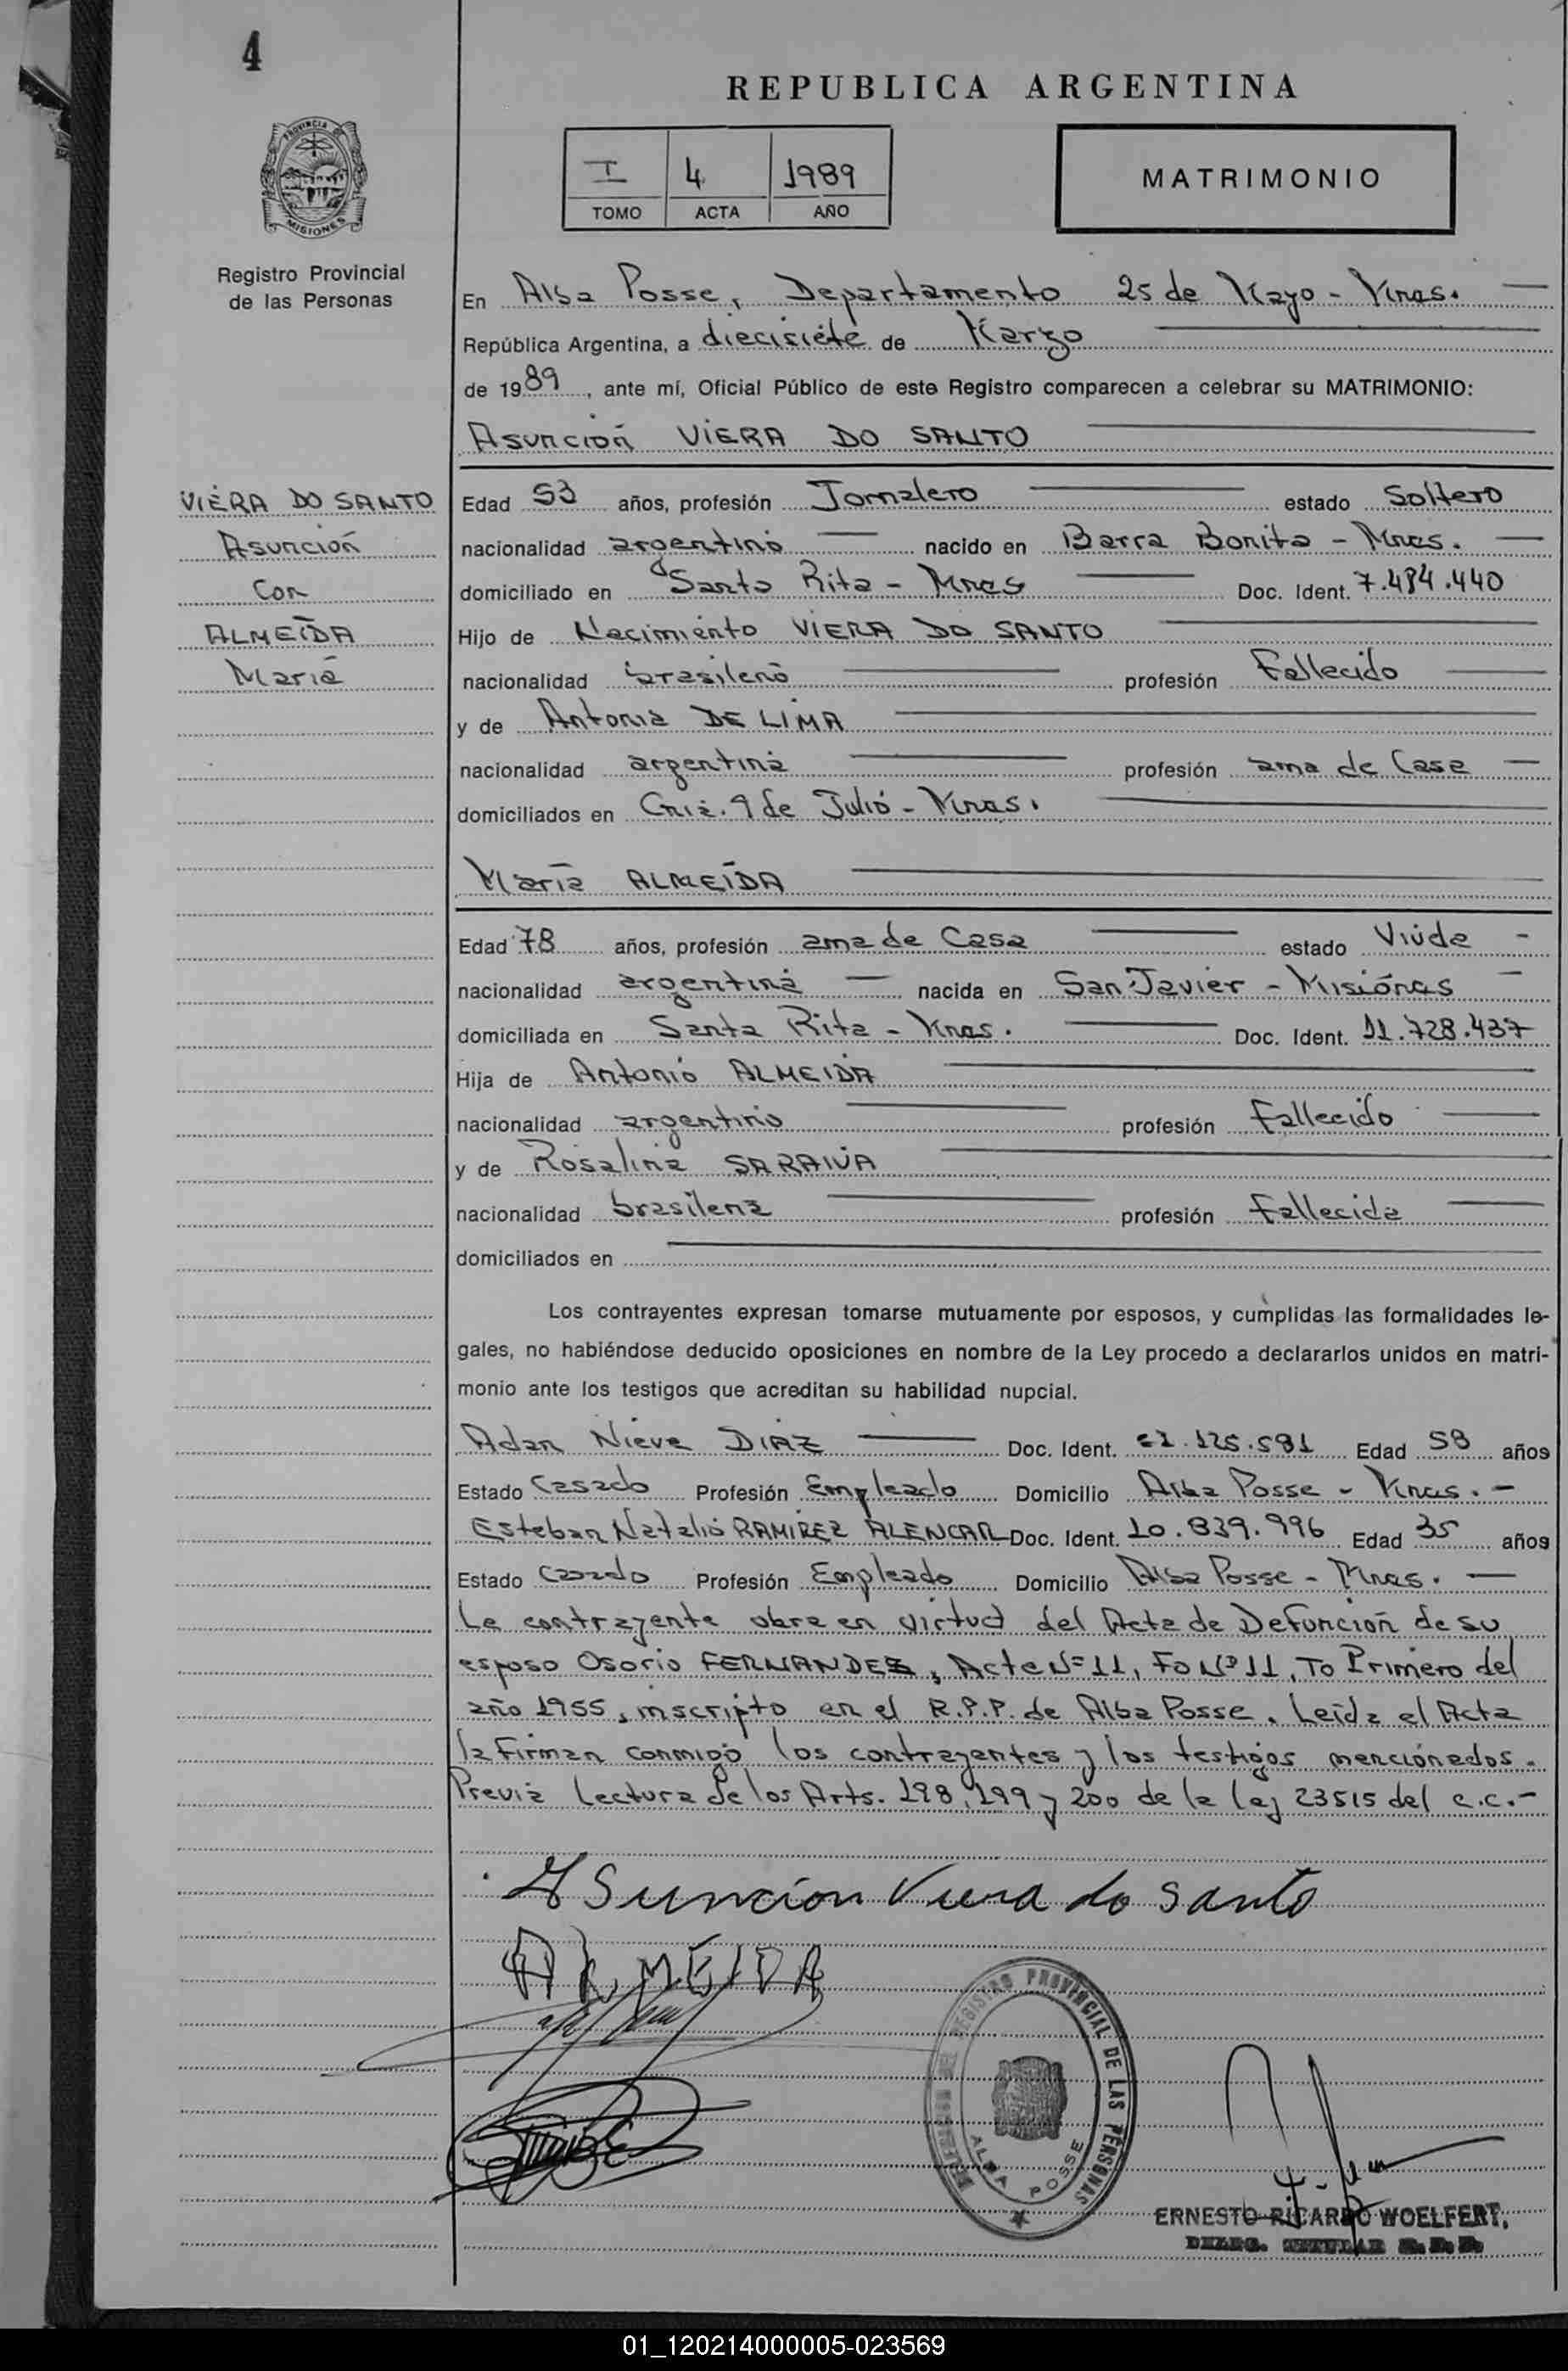 4
REPUBLICA ARGENTINA
PROVINCIA DE
MISIONES
I 4 1989
TOMO ACTA AÑO
MATRIMONIO
Registro Provincial
de las Personas
En Alba Posse, Departamento 25 de Mayo - Mnes.
República Argentina, a diecisiete de Marzo
de 1989, ante mí, Oficial Público de este Registro comparecen a celebrar su MATRIMONIO:
Asunción VIERA DO SANTO
VIERA DO SANTO
Asunción
Con
ALMEIDA
María
Edad 53 años, profesión Jornalero estado Soltero
nacionalidad argentino nacido en Barra Bonita - Mnes.
domiciliado en Santa Rita - Mnes Doc. Ident. 7.484.440
Hijo de Nacimiento VIERA DO SANTO
nacionalidad brasileño profesión Fallecido
y de Antonia DE LIMA
nacionalidad argentina profesión ama de Casa
domiciliados en Cnia. 9 de Julio - Mnes.
María ALMEIDA
Edad 78 años, profesión ama de Casa estado Viuda -
nacionalidad argentina nacida en San Javier - Misiones
domiciliada en Santa Rita - Mnes. Doc. Ident. 11.728.437
Hija de Antonio ALMEIDA
nacionalidad argentino profesión Fallecido
y de Rosalina SARAIVA
nacionalidad brasilena profesión Fallecida
domiciliados en
Los contrayentes expresan tomarse mutuamente por esposos, y cumplidas las formalidades le-
gales, no habiéndose deducido oposiciones en nombre de la Ley procedo a declararlos unidos en matri-
monio ante los testigos que acreditan su habilidad nupcial.
Adan Nieve DIAZ Doc. Ident. Edad 58 años
Estado Casado Profesión Empleado Domicilio Alba Posse - Mnes. -
Esteban Natalio RAMIREZ ALENCAR Doc. Ident. 10.839.996 Edad 35 años
Estado Casado Profesión Empleado Domicilio Alba Posse - Mnes. -
La contrayente obra en virtud del Acta de Defunción de su
esposo Osorio FERNANDES, Acta Nº 11, Fo Nº 11, To Primero del
año 1955, inscripto en el R.P.P. de Alba Posse. Leída el Acta
la firman conmigo los contrayentes y los testigos mencionados.
Previa Lectura de los Arts. 198, 199 y 200 de la Ley 23515 del c.c.-
Asuncion Viera do Santo
ALMEIDA
REGISTRO PROVINCIAL DE LAS PERSONAS
ALBA POSSE
ERNESTO RICARDO WOELFERT,
DELEG. TITULAR R.P.P.
01_120214000005-023569